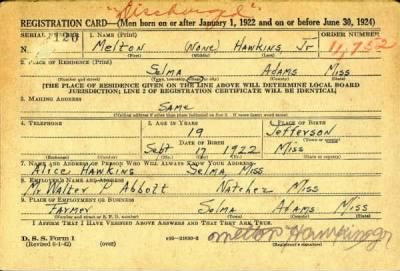 "Discharged"
REGISTRATION CARD—(Men born on or after January 1, 1922 and on or before June 30, 1924)
SERIAL NUMBER 1. NAME (Print) ORDER NUMBER
N 120 Melton (None) Hawkins, Jr 11,752
2. PLACE OF RESIDENCE (Print)
Selma Adams Miss
(Number and street) (Town, township, village, or city) (County) (State)
[THE PLACE OF RESIDENCE GIVEN ON THE LINE ABOVE WILL DETERMINE LOCAL BOARD
JURISDICTION; LINE 2 OF REGISTRATION CERTIFICATE WILL BE IDENTICAL]
3. MAILING ADDRESS
Same
[Mailing address if other than place indicated on line 2. If same insert word same]
4. TELEPHONE 5. AGE IN YEARS 6. PLACE OF BIRTH
19 Jefferson
DATE OF BIRTH (Town or county)
Sept 17 1922 Miss
(Exchange) (Number) (Mo.) (Day) (Yr.) (State or country)
7. NAME AND ADDRESS OF PERSON WHO WILL ALWAYS KNOW YOUR ADDRESS
Alice Hawkins Selma Miss
8. EMPLOYER'S NAME AND ADDRESS
Mr Walter P Abbott Natchez Miss
9. PLACE OF EMPLOYMENT OR BUSINESS
Farmer Selma Adams Miss
(Number and street or R. F. D. number) (Town) (County) (State)
I AFFIRM THAT I HAVE VERIFIED ABOVE ANSWERS AND THAT THEY ARE TRUE.
D. S. S. Form 1
(Revised 6-1-42) (over) (Registrant's signature)